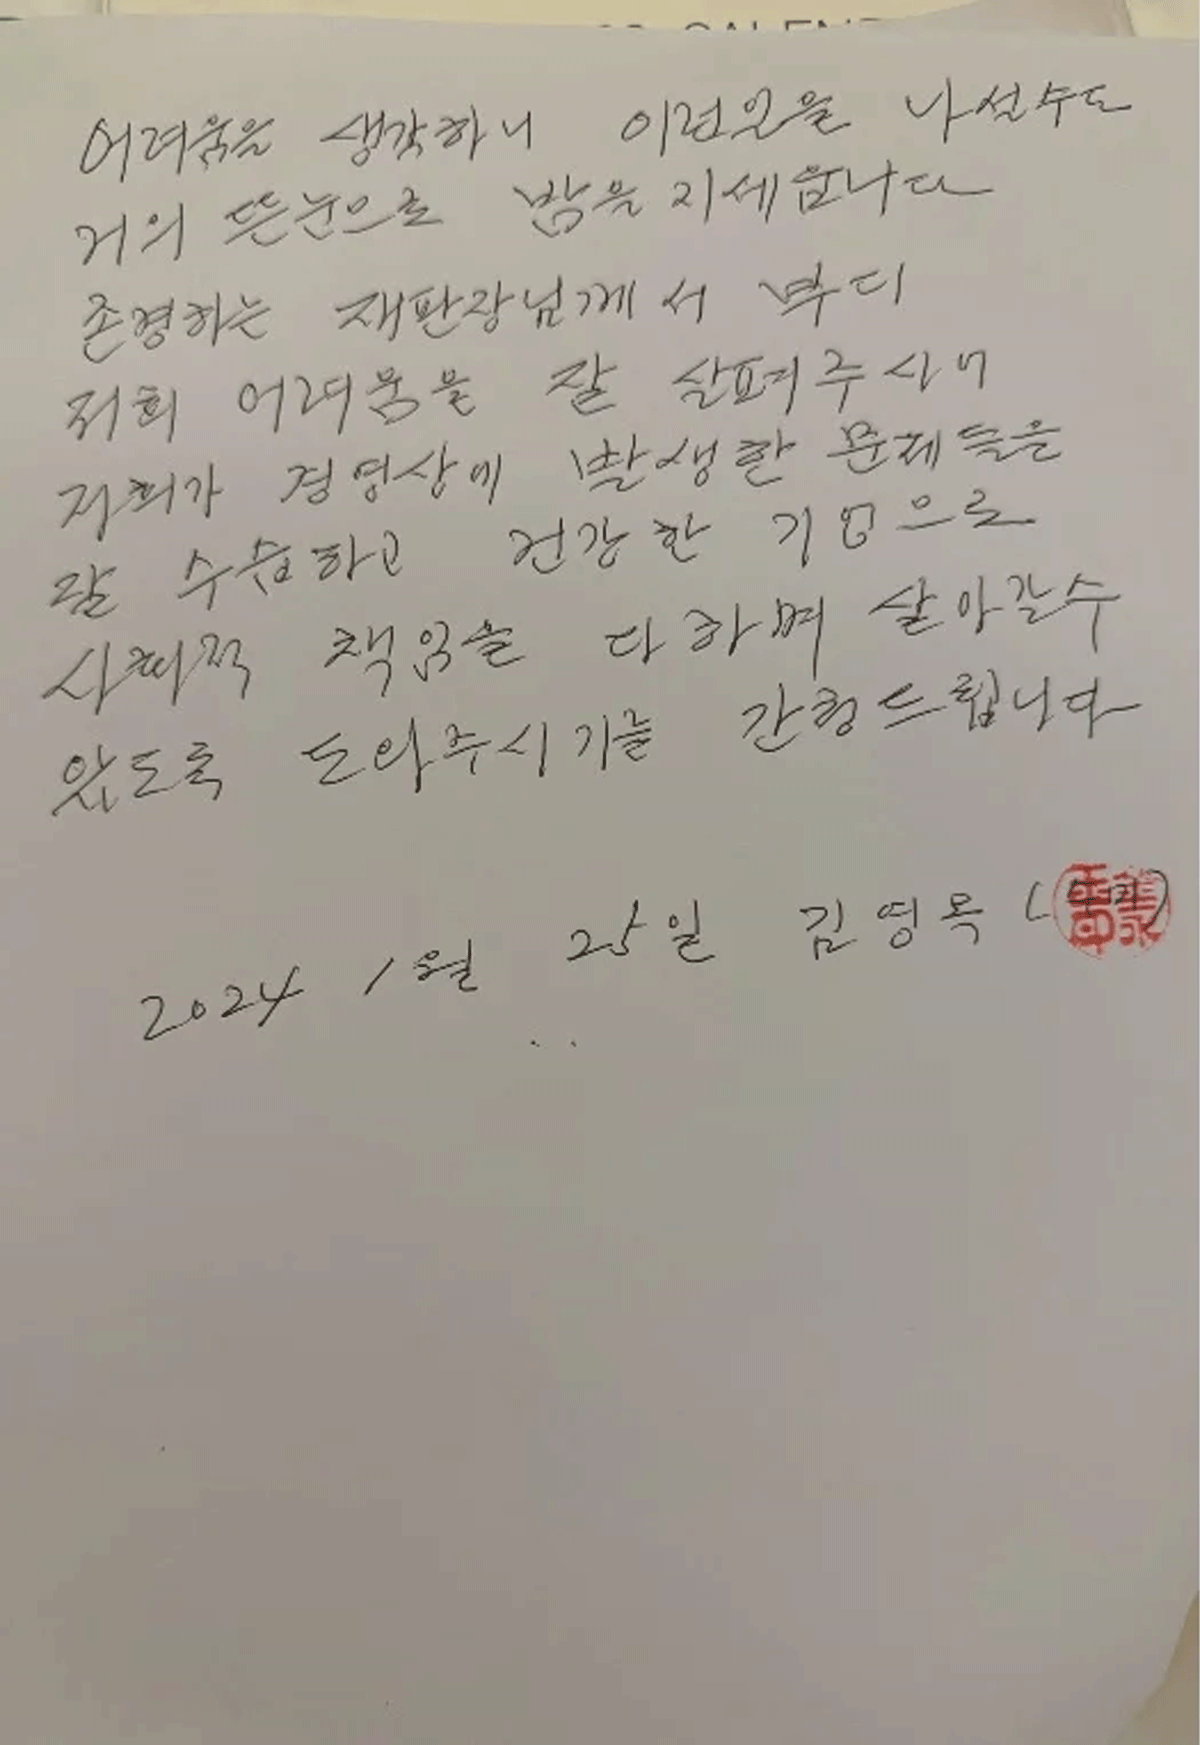 CALEN
어려움을 생각하니 이런일을 나설수도
거의 뜬눈으로 밤을 지세웁니다
존경하는 재판장님께서 부디
저희 어려움을 잘 살펴주시어
저희가 경영상에 발생한 문제들을
잘 수습하고 건강한 기업으로
사회적 책임을 다하며 살아갈수
있도록 도와주시기를 간청드립니다
2024 1월 25일 김영옥 (